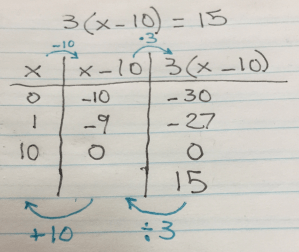 3(x-10) = 15
-10 ·3
x x-10 3(x-10)
0 -10 -30
1 -9 -27
10 0 0
15
+10 ÷3